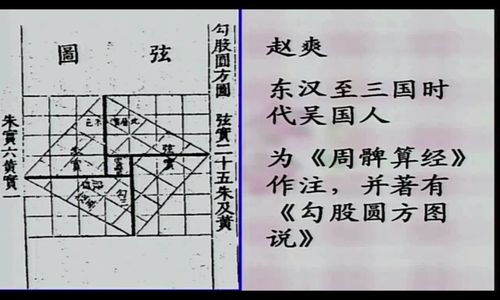 勾股圓方圖
弦圖
弦實二十五朱及黃
朱實六黃實一
赵爽
东汉至三国时
代吴国人
为《周髀算经》
作注，并著有
《勾股圆方图
说》